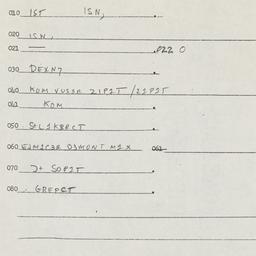 010 IST ISN,
020 ISN,
021 — .PZZ O
030 DEXN7
040 KOM VUSSR 21P2T /22P2T
041 KOM
050 StL1KBPCT
060 O3MONT M2X 061
070 J+ SOP2T
080 GREPCT